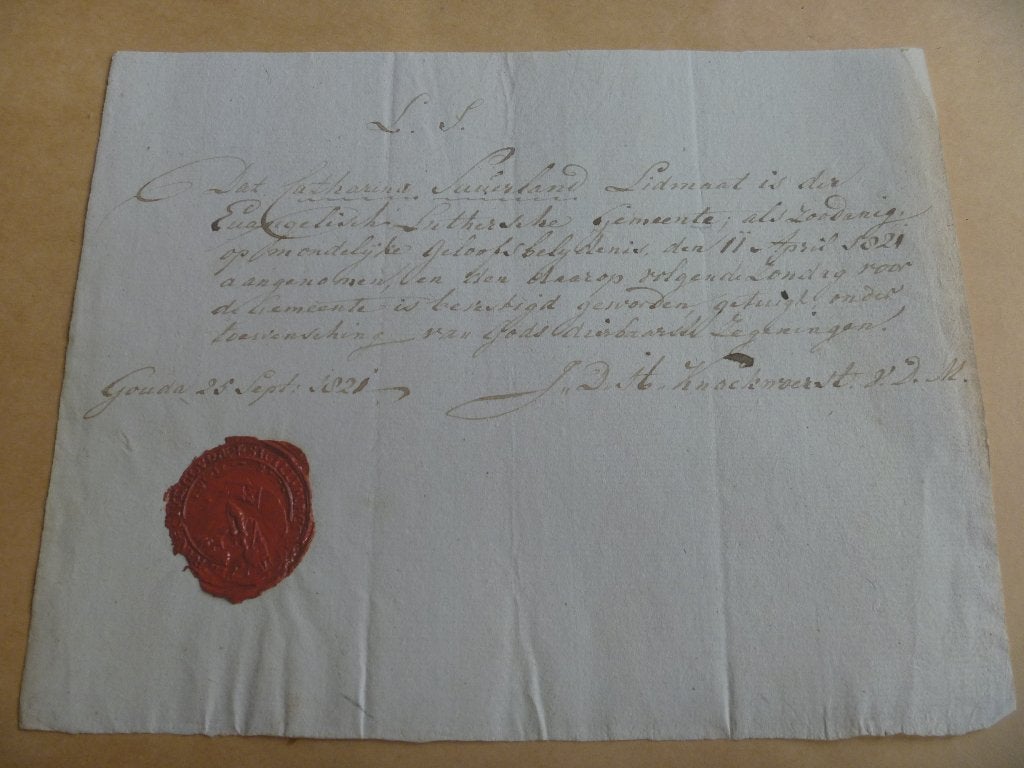 L. S.
Dat Catharina Suierland Lidmaat is der
Euangelisch Luthersche Gemeente, als zoodanig
op mondelijke Geloofsbelydenis, den 11 April 1821
aangenomen, en den daarop volgende Zondag voor
de Gemeente is bevestigd geworden, getuigt onder
toewensching van Gods dierbaarste Zegeningen.
Gouda 25 Sept: 1821 J. D. H. V. D. M.